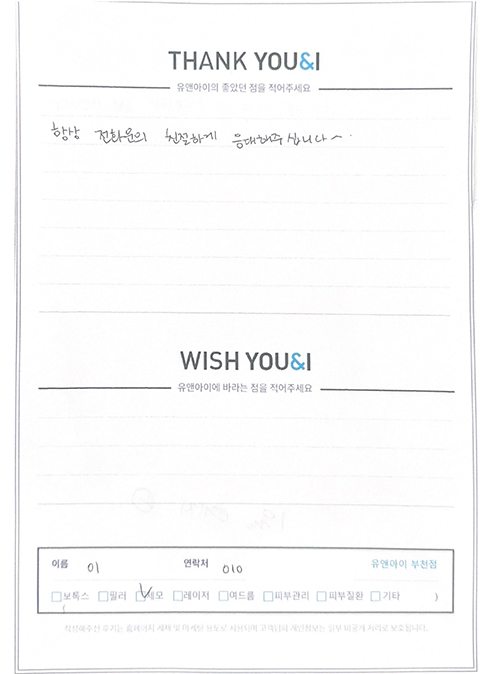 THANK YOU&I
유앤아이의 좋았던 점을 적어주세요
항상 전화문의 친절하게 응대해주십니다~.
WISH YOU&I
유앤아이에 바라는 점을 적어주세요
이름 이 연락처 010 유앤아이 부천점
보톡스 필러 제모 레이저 여드름 피부관리 피부질환 기타 )
(
작성해주신 후기는 홈페이지 게재 및 마케팅 용도로 사용되며 고객님의 개인정보는 일부 비공개 처리로 보호됩니다.